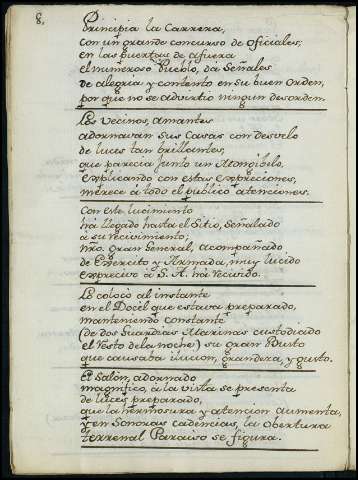 8.
Principia la Carrera,
con un grande concurso de oficiales,
en las puertas de afuera
el numeroso Pueblo, dá Señales
de alegria y contento en su buen orden,
por que no se advirtio ningun desorden.
Los Vecinos, amantes
adornavan sus Casas con desvelo
de luces tan brillantes,
que parecia junto un Mongibelo,
explicando con estas expreciones,
merece â todo el publico atenciones.
Con este lucimiento
há llegado hasta el Sitio, Señalado
â su recivimiento,
nro. gran General, acompañado
de Exercito y Armada, muy lucido
exprecivo â S. A. há recivido.
Lo colocó al instante
en el Docel que estava preparado,
manteniendo constante
(de dos Guardias Marinas custodiado
el resto de la noche) su gran Busto
que causaba ilucion, grandeza, y gusto.
El Salón, adornado
magnifico, â la vista se presenta
de luces preparado,
que la hermosura y atencion aumenta,
y en Sonoras cadencias, la obertura
terrenal Paraiso se figura.